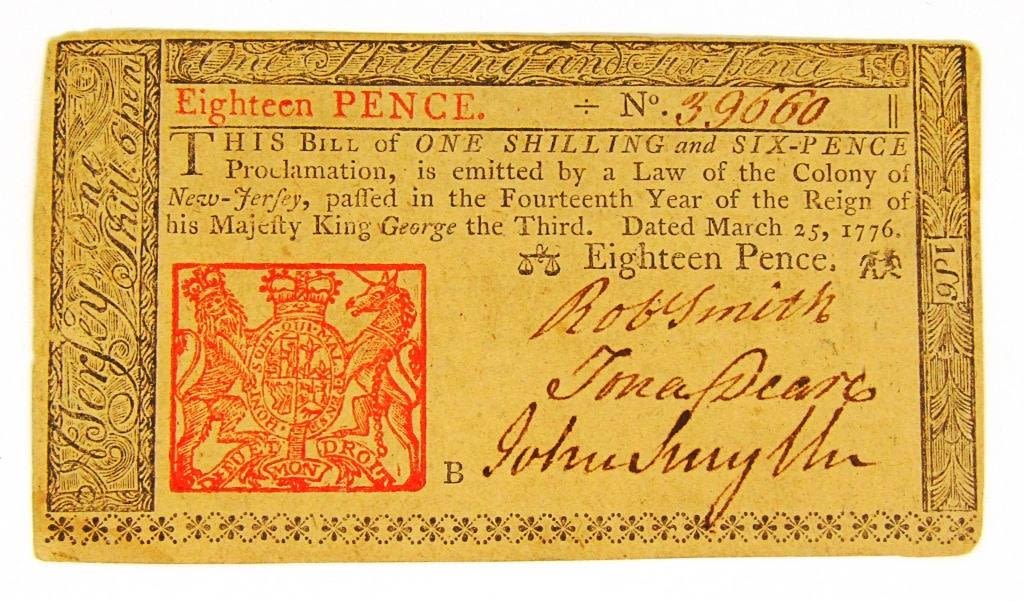 One Shilling and Six pence 1s6
Eighteen PENCE. ÷ No. 39660
THIS BILL of ONE SHILLING and SIX-PENCE
Proclamation, is emitted by a Law of the Colony of
New-Jerſey, paſſed in the Fourteenth Year of the Reign of
his Majeſty King George the Third. Dated March 25, 1776.
Eighteen Pence.
Rob Smith
Jona Deare
John Smyth
B
HONI SOIT QUI MAL PENSE
DIEU ET MON DROIT
N Jersey One
Shill. 6 pen
1s6